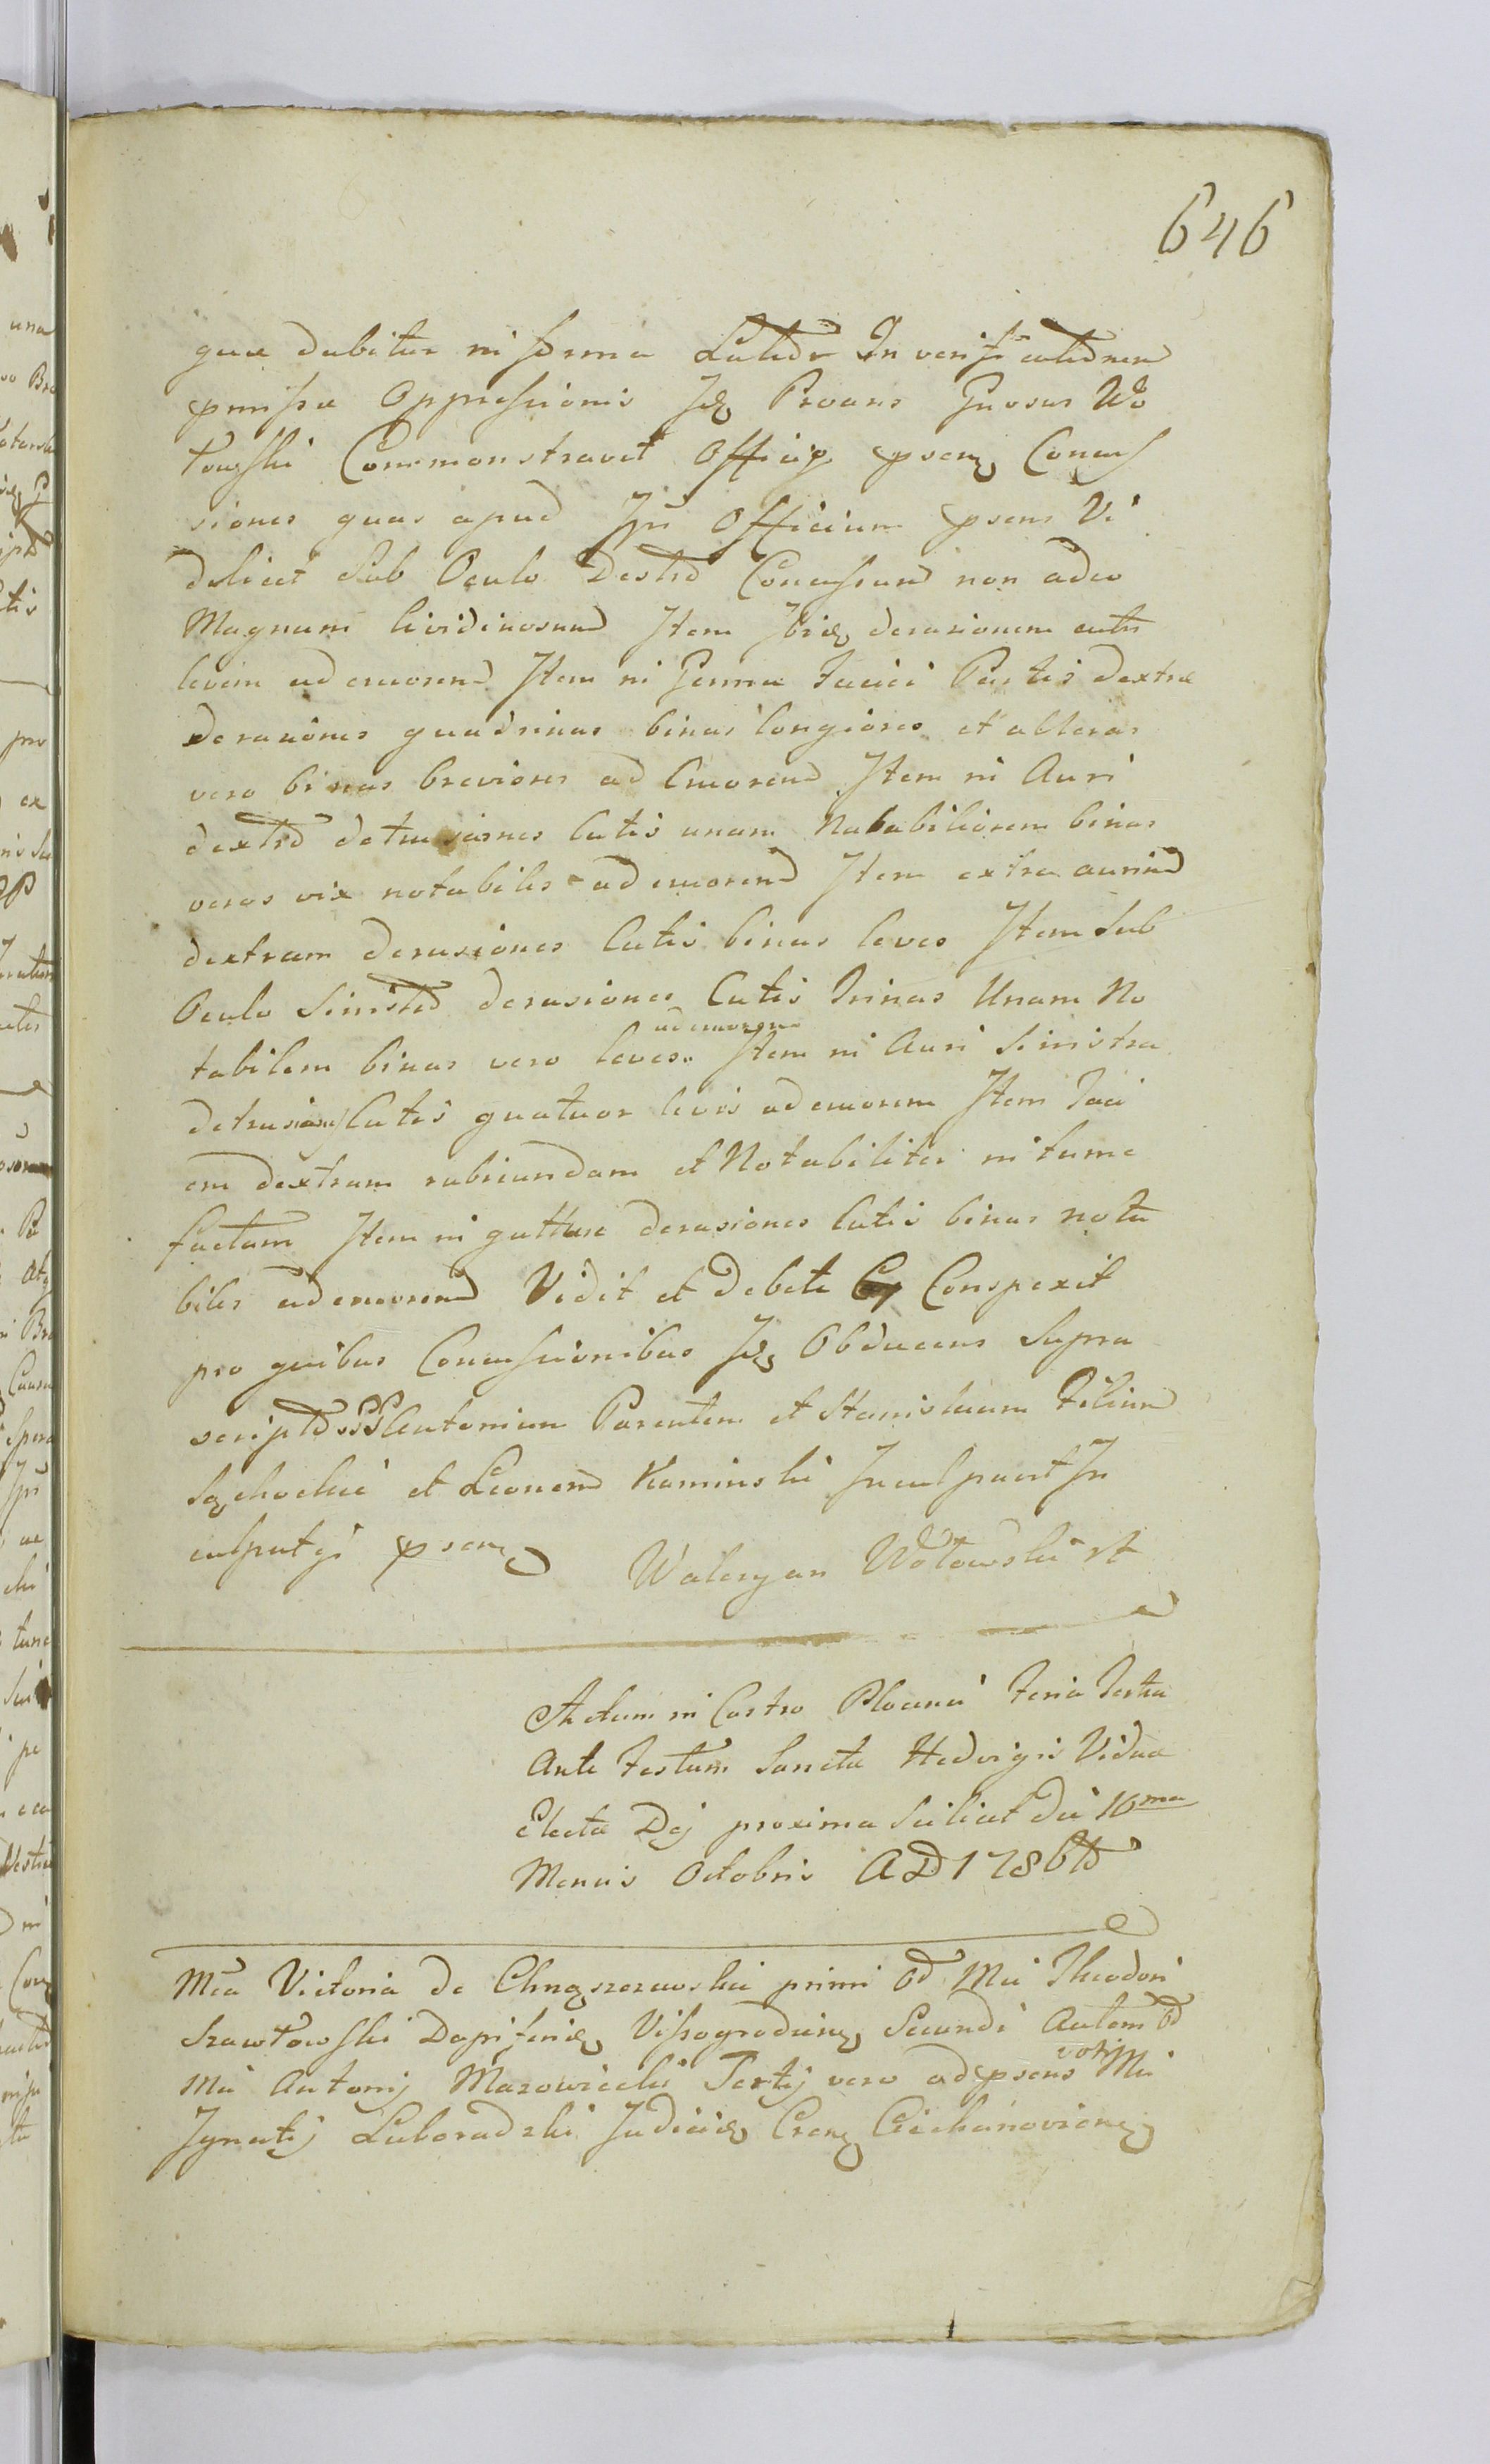 646
quae dabitur in forma Latidr In verificatidnem
pmissae Oppressionis Idq Proans Gnosus Wo
łowski Commonstravit Officio psenq Concus
siones quas apud Ipm Officium psens Vi
delicet Sub Oculo Dextro Concussum non adeo
Magnum lividinosum Item Ibidq derasionem cutis
levem ad cruorem Item in Genna faciei Partis dextrae
derasiones quadrinas binas longiores et alteras
vero binas breviores ad Cruorem Item in Auri
dextra detrusiones Cutis unam Notabiliorem binas
veros vix notabiles ad cruorem Item extra aurim
dextram derasiones Cutis binas leves Item Sub
Oculo Sinistro derasiones Cutis Trinas Unam No
tabilem binas vero leves ad cruorem Item in Auri Sinistra
detrusiones Cutis quatuor levis ad cruorem Item Faci
em dextram rubicundam et Notabiliter in tume
factam Item in gutture derasiones Cutis binas nota
biles ad cruorem Vidit et debite Conspexit
pro quibus Concussionibus Idq Obducens Supra
scriptos Antonium Parentem et Stanislaum Filium
Sąchockie et Leonem Kaminski Inculpavit In
culpatqi psenq Waleryan Wołowski
Actum in Castro Plocensi Feria Tertia
Ante Festum Sancta Hedvigis Vidua
Electa Dej proxima Scilicet die 10ma
Mensis Octobris AD 1786to
Mca Victoria de Chrząszczewskie primi Mci Theodori
Szawłowski Dapiferidq Vissogrodienq Secundi Autem
Mci Antonij Mazowiecki Tertij vero ad psens voti Mci
Ignatij Luboradzki Judicidq Crenq Ciechanovienq